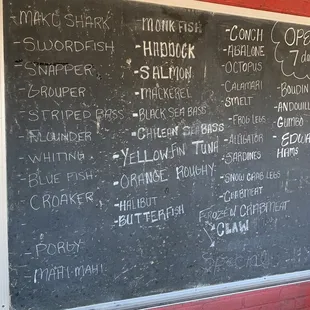 MAKO SHARK
-SWORDFISH
-SNAPPER
-GROUPER
-STRIPED BASS
-FLOUNDER
-WHITING
-BLUE FISH
CROAKER
-PORGY
-MAHI-MAHI
-MONK FISH
-HADDOCK
-SALMON
-MACKEREL
-BLACK SEA BASS
-CHILEAN SEA BASS
-YELLOW FIN TUNA
-ORANGE ROUGHY
-HALIBUT
-BUTTERFISH
-CONCH
-ABALONE
-OCTOPUS
-CALAMARI
SMELT
-FROG LEGS
-ALLIGATOR
-SARDINES
-SNOW CRAB LEGS
-CRABMEAT
FROZEN CRABMEAT
CLAW
OPE
7 da
BOUDIN
-ANDOUILL
-GUMBO
-EDWA
HAMS